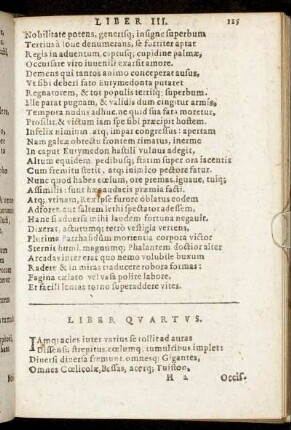 LIBER III. 115
Nobilitate potens, generisq; insigne superbum
Tertius à Ioue denumerans, se fortiter aptat
Regis in aduentum, captusq; cupidine palmæ,
Occursare viro iuuenili exarsit amore.
Demens qui tantos animo conceperat ausus,
Vt sibi deberi fato Eurymedonta putaret
Regnatorem, & tot populis terrisq; superbum.
Ille parat pugnam, & validis dum cingitur armis,
Tempora nudus adhuc, ne quid sua fata moretur,
Prosilit, & victum iam spe sibi præcipit hostem.
Infelix nimium, atq; impar congressus: apertam
Nam galeæ obrectu frontem rimatus, inerme
In caput Eurymedon hastili vulnus adegit,
Altum equidem, pedibusq; statim super ora iacentis
Cum fremitu stetit, atq; inimico pectore fatur.
Nunc quod habes cœlum, ore premas, ignaue, tuisq;
Assimilis: sunt hæc audacis præmia facti.
Atq; vtinam, Rex ipse furore oblatus eodem
Adforet, aut saltem lethi spectator adesset,
Hanc si aduersa mihi laudem fortuna negauit.
Dixerat, acutumq; retrò vestigia vertens,
Plurima Parrhasidûm morientia corpora victor
Sternit humi, magnumq; Phalanterm doctior alter
Arcadas inter erat quo nemo volubile buxum
Radere & in miras traducere robora formas:
Pagina cælato vel vasa polire labore.
Et facili lentas torno superaddere vites.
LIBER QVARTVS.
IAmq; acies inter varius se tollit ad auras
Dissensus, strepitus cœlumq; tumultibus implet:
Diuersi diuersa fremunt, omnesq; Gigantes,
Omnes Cœlicolæ, Bessas, acerq; Tuisson,
H 2 Occis.